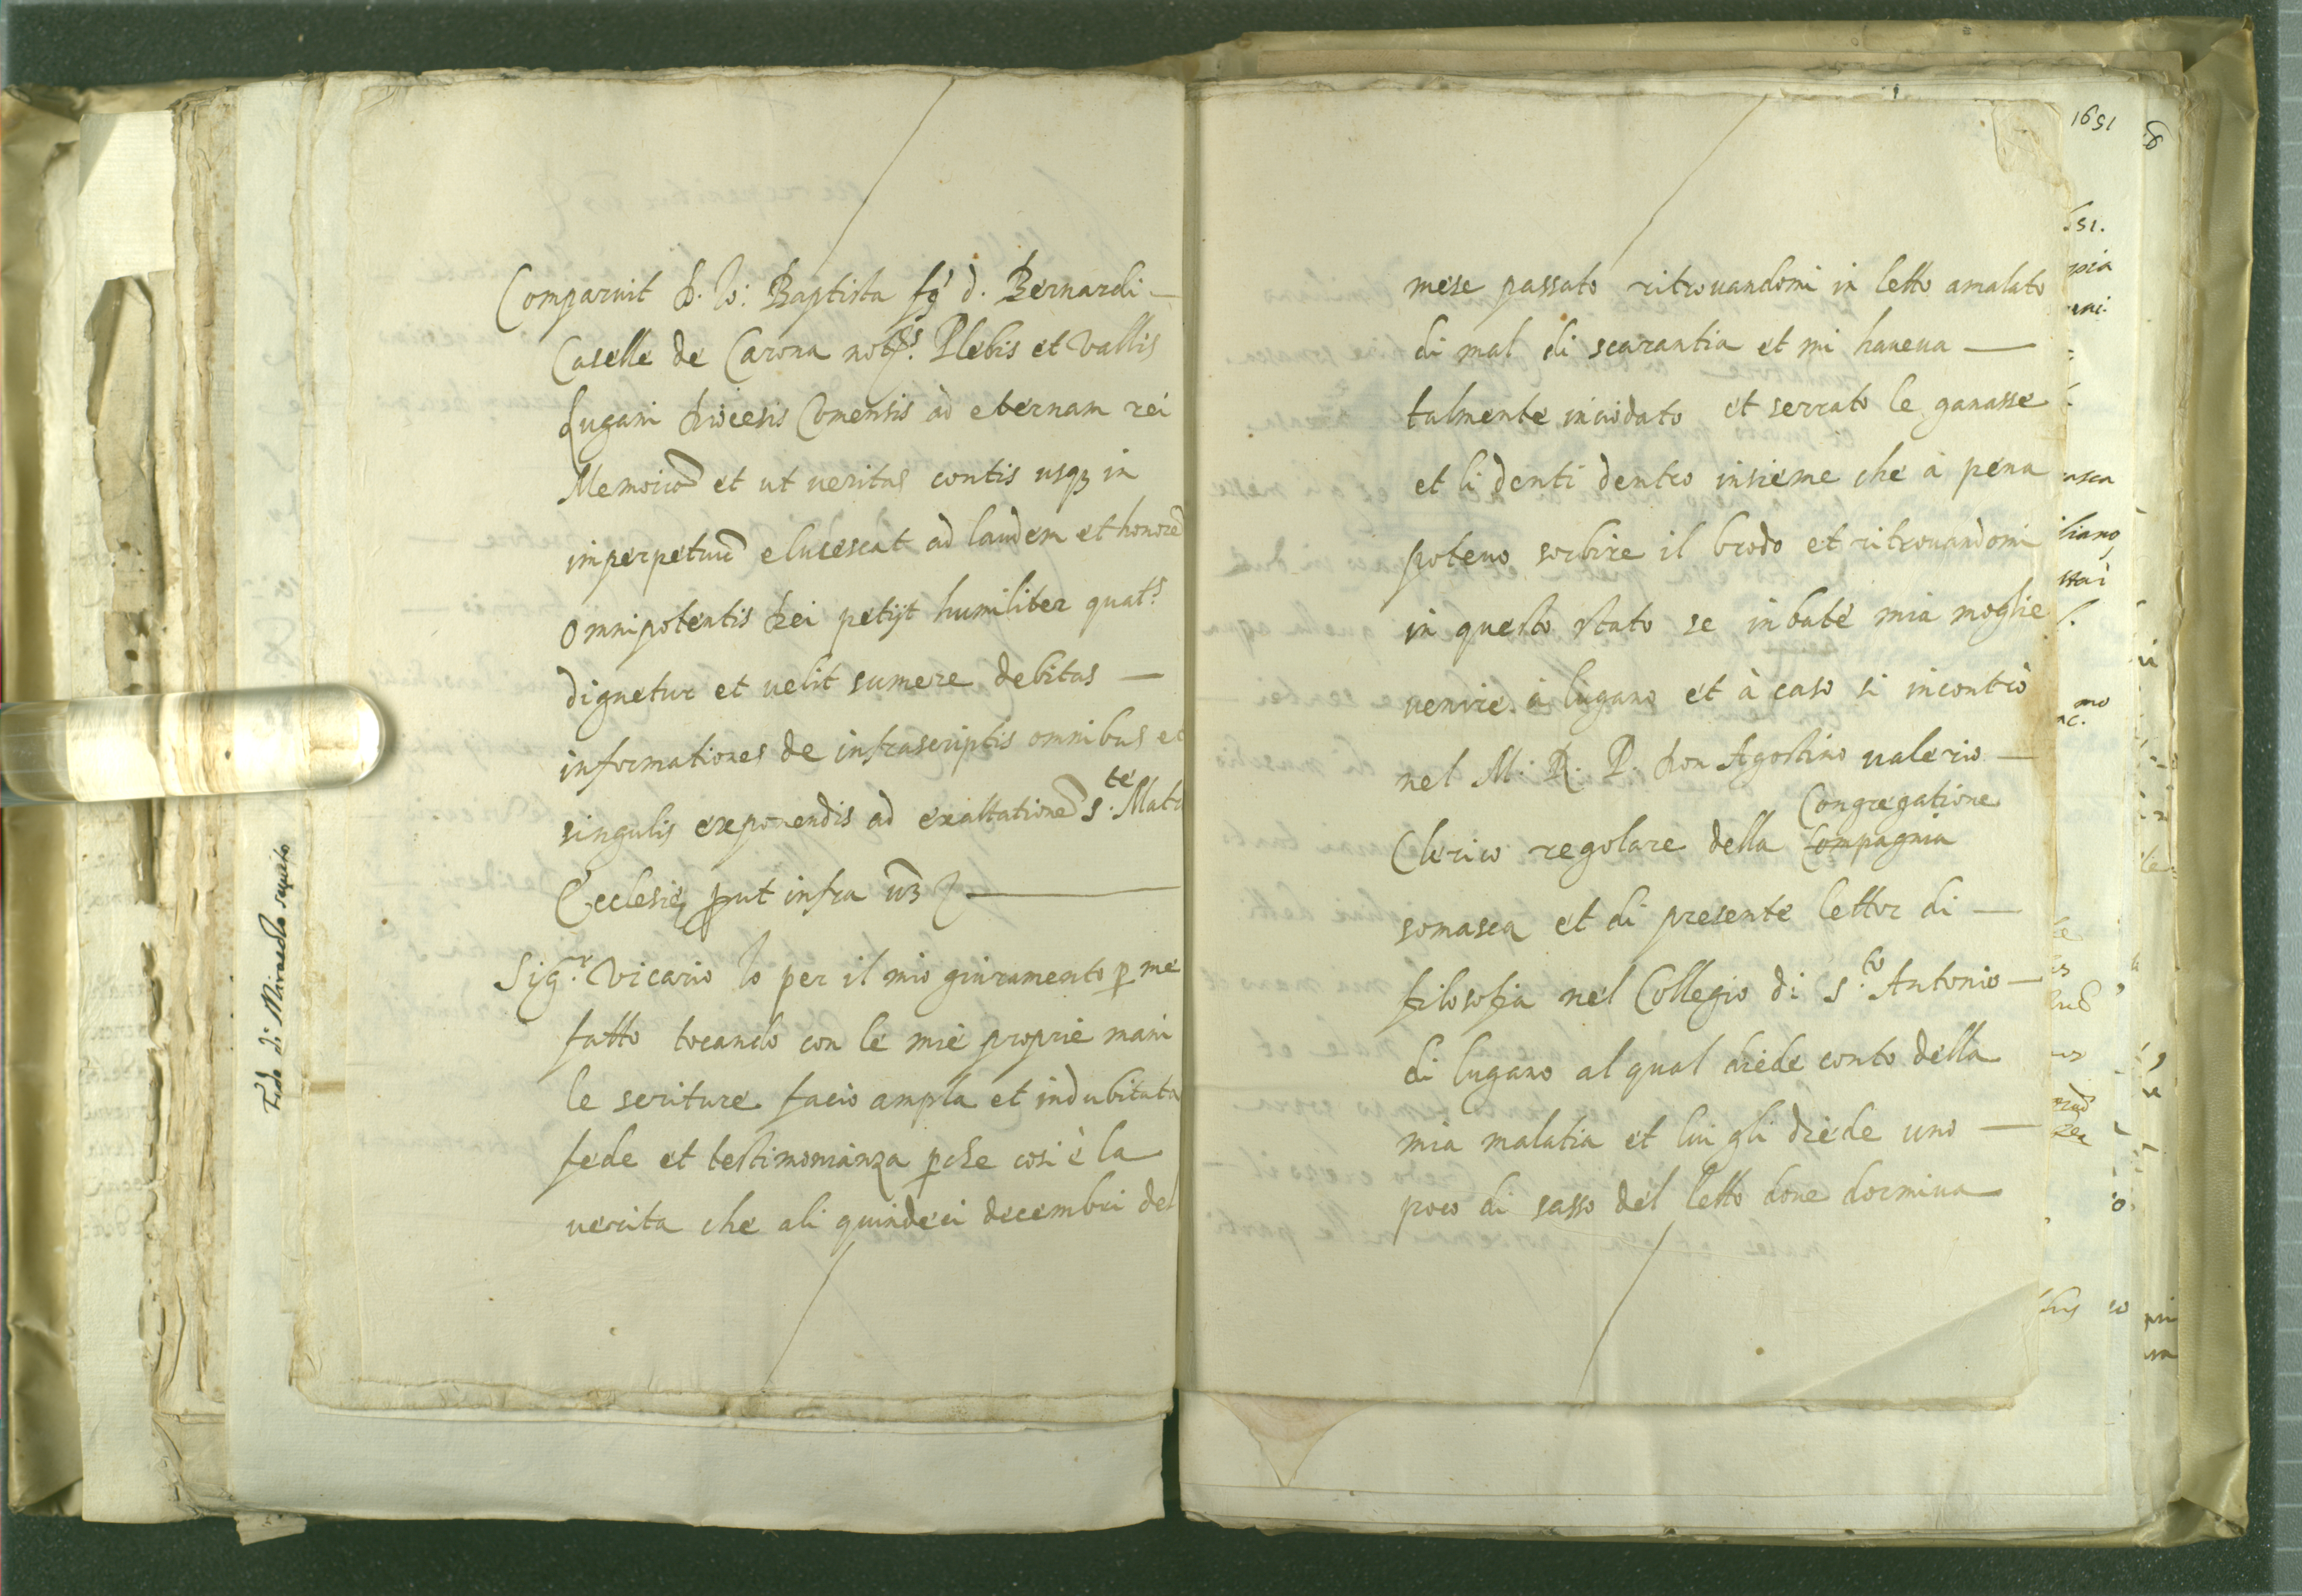 Comparuit D. Io: Baptista fq. d. Bernardi —
Caselle de Carona Plebis et Vallis
Lugani Diocesis Comensis ad eternam rei
Memoriã et ut veritas contis usq3 in
imperpetuũ elucescat ad laudem et honorẽ
omnipotentis Dei petijt humiliter quat.s
dignetur et uelit sumere debitas —
informationes de infrascriptis omnibus et
singulis exponendis ad exaltationẽ S.te Matr
Ecclesię put infra
Sig.r Vicario Io per il mio giuramento p me
fatto tocando con le mie proprie mani
le scriture facio ampla et indubitata
fede et testimonianza pche cosi è la
verita che ali quindeci decembri del
Fede di Miracolo seguito
mese passato ritrouandomi in letto amalato
di mal di scarantia et mi haueua —
talmente inciodato et serrato le ganasse
et li denti dentro insieme che à pena
poteuo sorbire il brodo et ritrouandomi
in questo stato se inbatè mia moglie
venire à lugano et à caso si incontrò
nel M. R. P. Don Agostino valerio —
Congregatione
Clerico regolare della Compagnia
somasca et di presente lettor di —
filosofia nel Collegio di S.to Antonio —
di lugano al qual diede conto della
mia malatia et lui gli diede uno —
poco di sasso del letto doue dormiua
1651